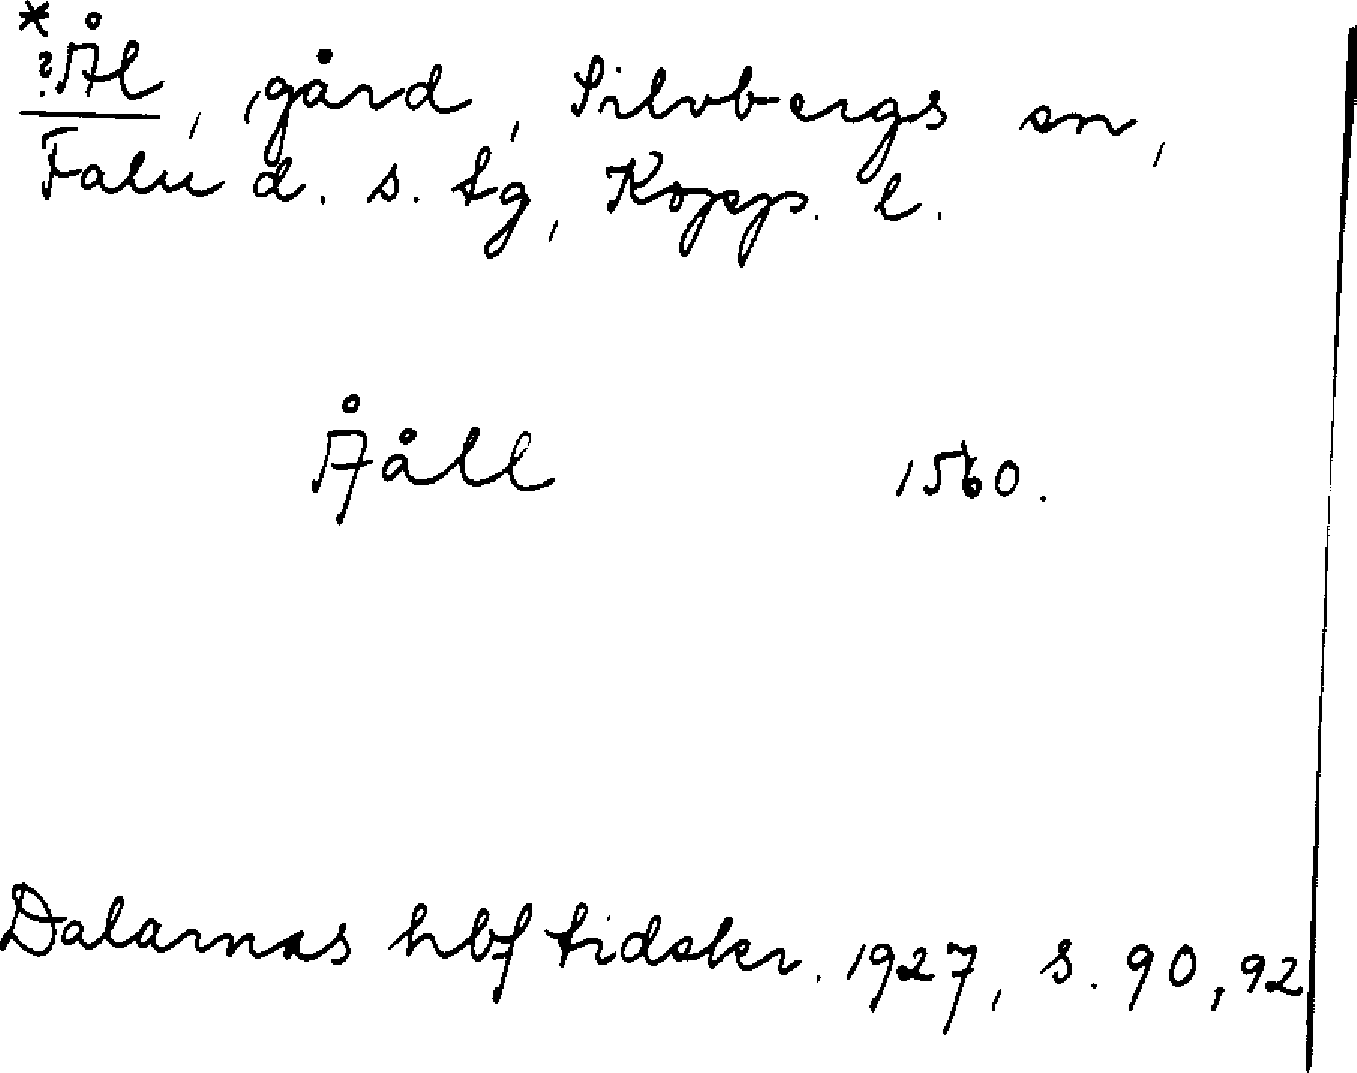 *
?Ål, gård, Silvbergs sn,
Falu d. s. tg, Kopp. l.
Ååll 1560.
Dalarnas hbf tidskr. 1927, s. 90, 92